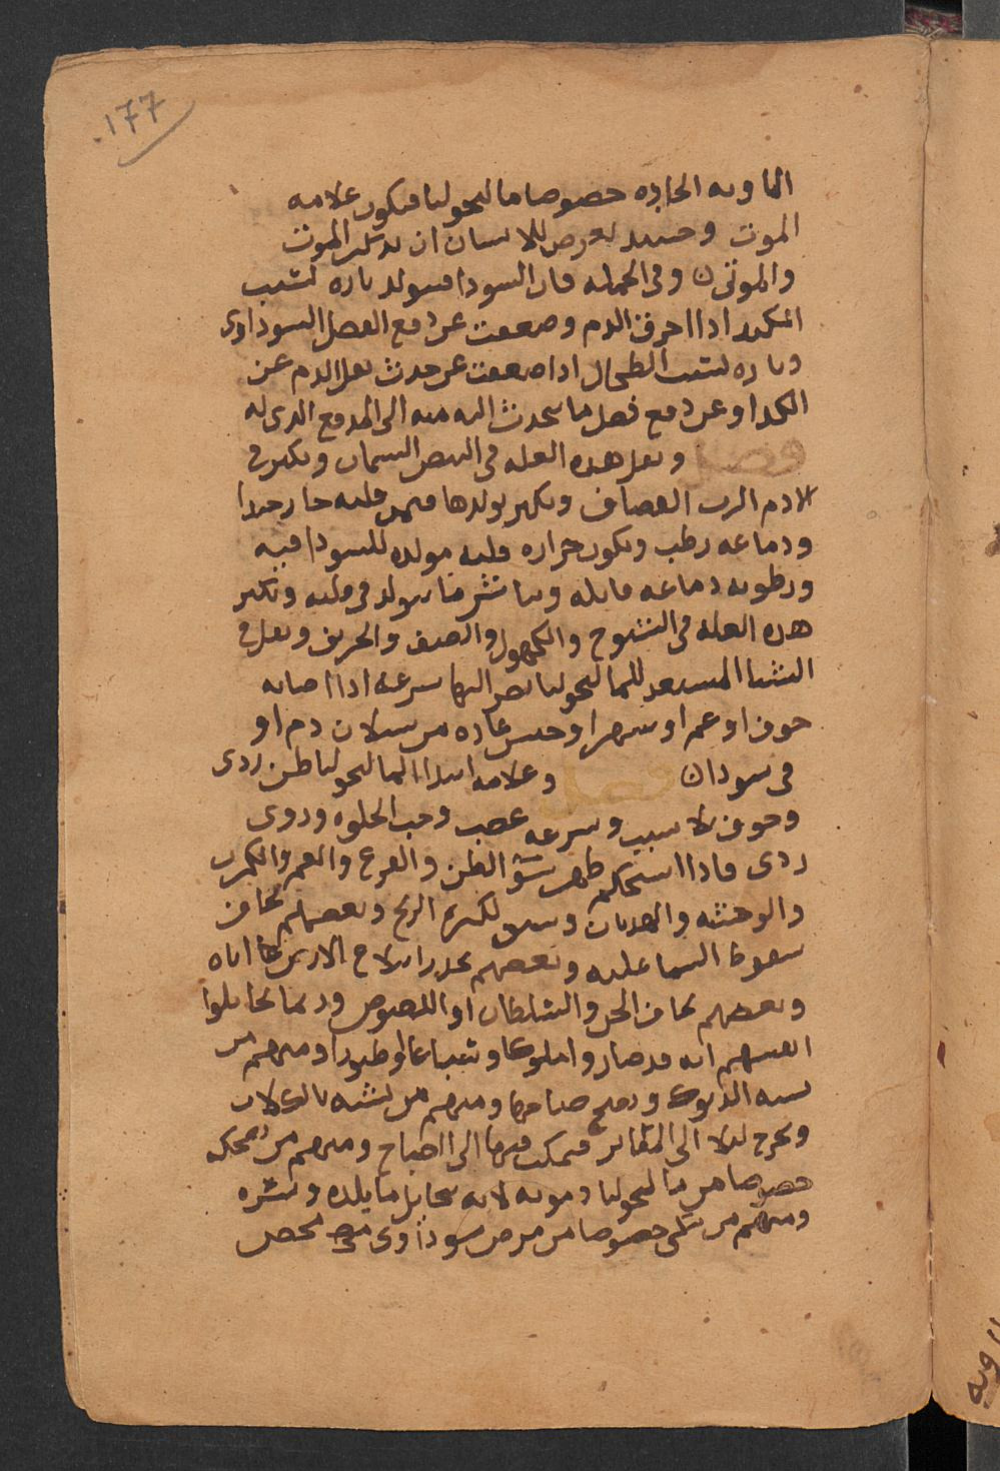 ١٧٧
الماويه الحاده خصوصا مالىحوليا فىكون علامه
الموت وحىىىد ىعرض للاىسان ان ىدىر الموت
والموتى وفى الجمله فان السودا ىىولد ىاره لىىىب
الكىد اذا احرق الدم وضعفت عن دفع الفصل السوداوى
وىاره لىىىب الطحال اذا ضعفت عن جذب ىفل الدم عن
الكبد او عن دفع فضل ما ىجذب اليه منه الى المدفع الذى له
فصل وىقل هذه العله فى البيض السمان وىكىر فى
الادم الزب القضاف وىكىر ىولدها فىمن قلبه حار جدا
ودماغه رطب وىكون حراره قلبه مولده للسودا فىه
ورطوبه دماغه قابله وىىاثر مما ىىولد فى قلبه وىكىر
هذه العله فى الشىوخ والكهول والصيف والخريف وىقل فى
الشتا المستعد للمالىحوليا ىصىر اليها بسرعه اذا اصابه
خوف او غم او سهر او حبس عاده من سىلان دم او
قى سودان فصل وعلامه ابتدا المالىحوليا ظن ردى
وخوف بلا سبب وسرعه غضب وحب الخلوه ودوى
ردى فاذا استحكم ظهر سو الظن والفزع والغم والكرب
والوحشه والهذيان وسىق لكثره الريح وبعضهم يخاف
سقوط السما عليه وبعضهم يحذر ابتلاع الارض اياه
وبعضهم يخاف الجن والسلطان او اللصوص وربما تخايلوا
انفسهم انه قد صاروا ملوكا او سباعا او طيورا ومنهم من
ىشبه الديوك وىصىح صياحها ومنهم من يتشبه بالكلاب
ويخرج ليلا الى المقابر فيمكث فيها الى الصباح ومنهم من يضحك
خصوصا من مالىحوليا دمويه لانه يتخايل ما يلذه ويسره
ومنهم من يبكى خصوصا من مرض سوداوى محض